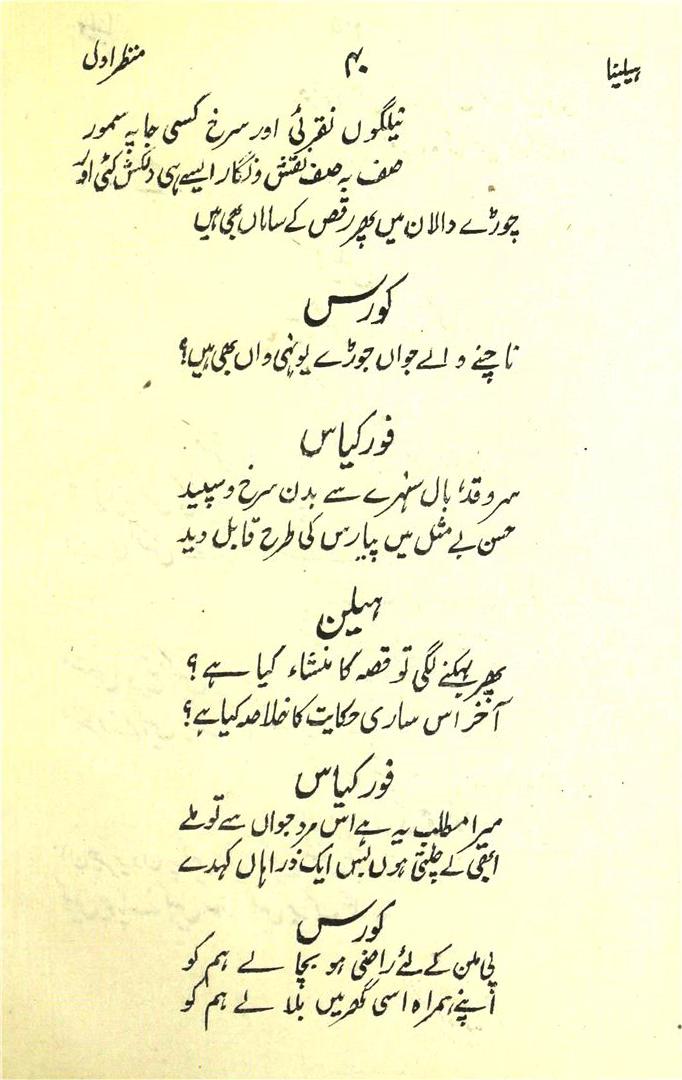 ہیلینا ۴۰ منظر اولی
نیلگوں نقرئی اور سرخ کسی جا پہ سمور
صف بہ صف نقش و نگار ایسے ہی دلکش کئی اور
چوڑے دالان میں پھر رقص کے ساماں بھی ہیں
کورس
ناچنے والے جواں جوڑے یونہی واں بھی ہیں؟
فورکیاس
سرو قد، بال سنہرے سے بدن سرخ و سپید
حسن بے مثل میں پیارس کی طرح قابل دید
ہیلن
پھر بہکنے لگی تو قصہ کا منشاء کیا ہے؟
آخر اس ساری حکایت کا خلاصہ کیا ہے؟
فورکیاس
میرا مطلب یہ ہے اس مرد جواں سے تو ملے
ابھی کے چلتی ہوں بس ایک ذرا ہاں کہدے
کورس
پی ملن کے لئے راضی ہو بچا لے ہم کو
اپنے ہمراہ اسی گھر میں بلا لے ہم کو